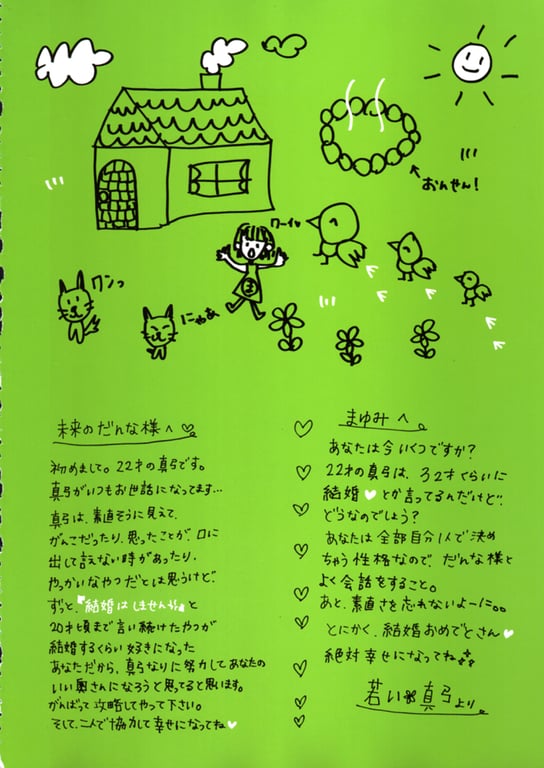 おんせん!
ワーイ
ワンっ
にゃあ
ま
未来のだんな様へ♡
初めまして。22才の真弓です。
真弓がいつもお世話になってます…
真弓は、素直そうに見えて、
がんこだったり、思ったことが、口に
出して言えない時があったり、
やっかいなやつだとは思うけど、
ずっと、"結婚はしません"と
20才頃まで言い続けたやつが
結婚するくらい好きになった
あなただから、真弓なりに努力してあなたの
いい奥さんになろうと思ってると思います。
がんばって攻略してやって下さい。
そして、二人で協力して幸せになってね♥
まゆみへ。
あなたは今いくつですか?
22才の真弓は、32才くらいに
結婚♥とか言ってるんだけど…
どうなのでしょう?
あなたは全部自分1人で決め
ちゃう性格なので、だんな様と
よく会話をすること。
あと、素直さを忘れないよーに。。
とにかく、結婚おめでとさん♥
絶対幸せになってね
若い真弓より。